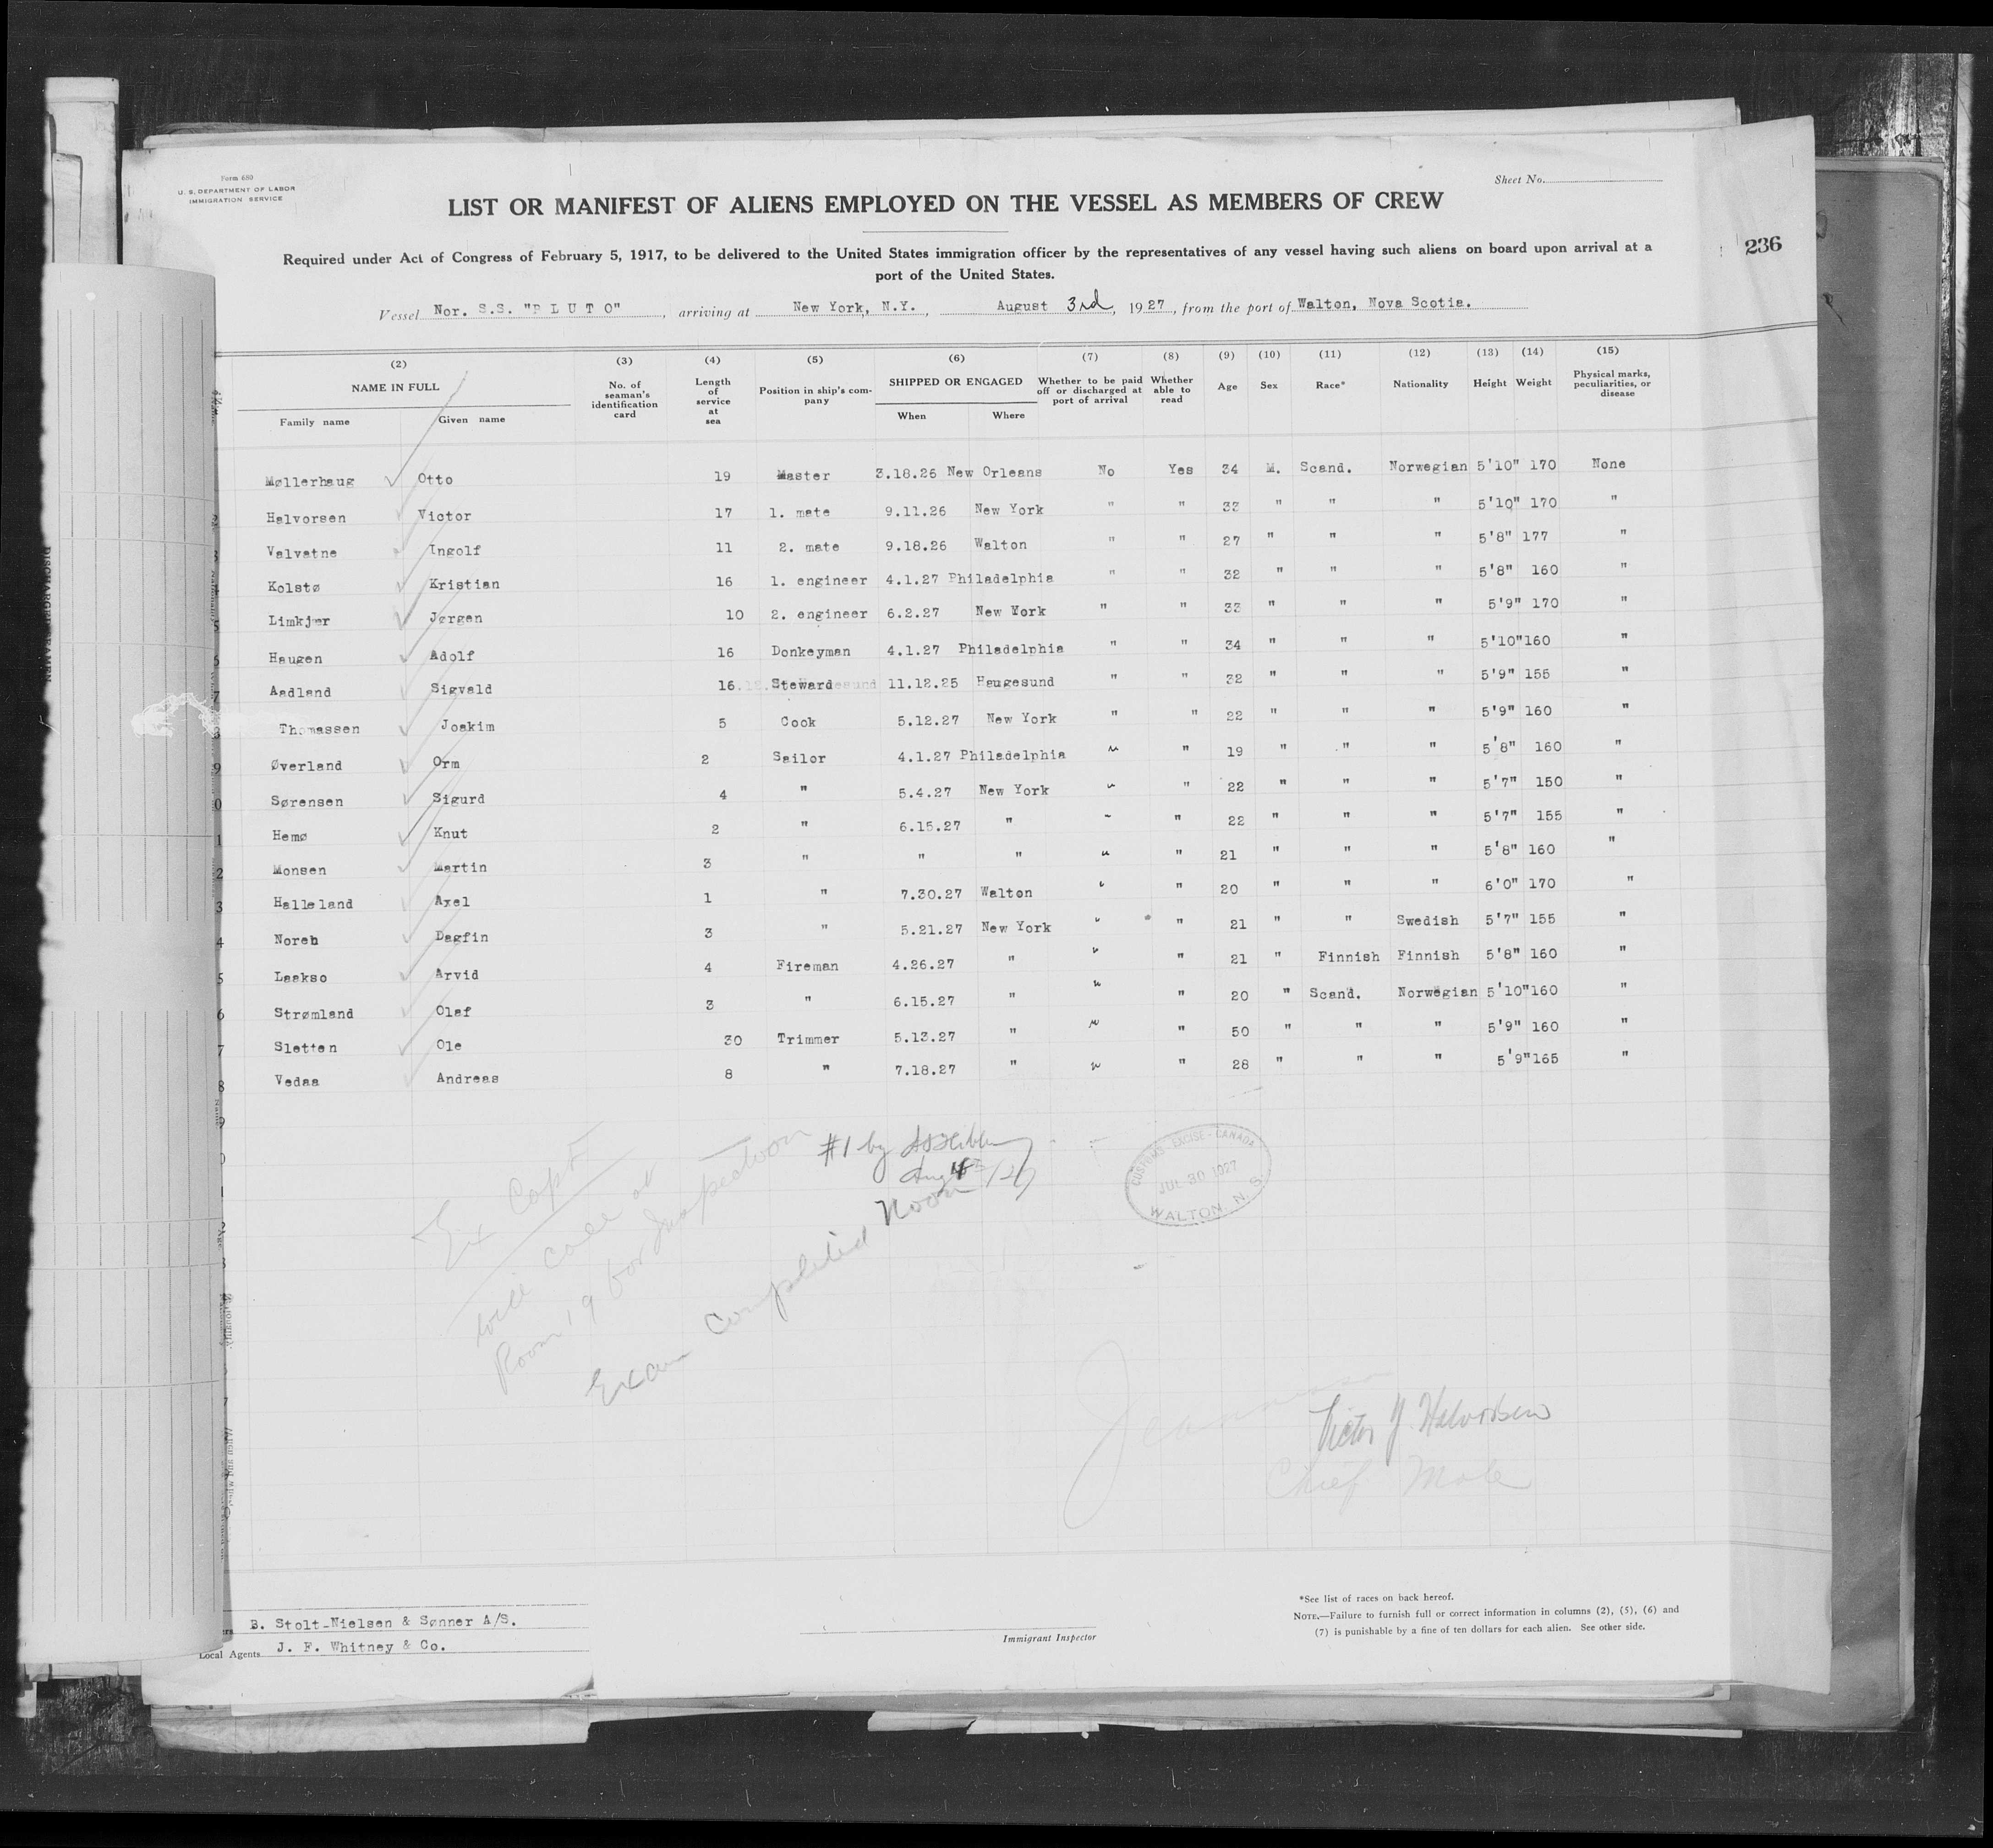 Form 680
U. S. DEPARTMENT OF LABOR
IMMIGRATION SERVICE
Sheet No.
LIST OR MANIFEST OF ALIENS EMPLOYED ON THE VESSEL AS MEMBERS OF CREW
Required under Act of Congress of February 5, 1917, to be delivered to the United States immigration officer by the representatives of any vessel having such aliens on board upon arrival at a
port of the United States.
236
Vessel Nor. S.S. "P L U T O", arriving at New York, N.Y., August 3rd, 1927, from the port of Walton, Nova Scotia.
(2) (3) (4) (5) (6) (7) (8) (9) (10) (11) (12) (13) (14) (15)
NAME IN FULL No. of seaman's identification card Length of service at sea Position in ship's company SHIPPED OR ENGAGED Whether to be paid off or discharged at port of arrival Whether able to read Age Sex Race* Nationality Height Weight Physical marks, peculiarities, or disease
Family name Given name When Where
Møllerhaug Otto 19 Master 3.18.26 New Orleans No Yes 34 M. Scand. Norwegian 5'10" 170 None
Halvorsen Victor 17 1. mate 9.11.26 New York " " 33 " " " 5'10" 170 "
Valvatne Ingolf 11 2. mate 9.18.26 Walton " " 27 " " " 5'8" 177 "
Kolstø Kristian 16 1. engineer 4.1.27 Philadelphia " " 32 " " " 5'8" 160 "
Limkjær Jørgen 10 2. engineer 6.2.27 New York " " 33 " " " 5'9" 170 "
Haugen Adolf 16 Donkeyman 4.1.27 Philadelphia " " 34 " " " 5'10" 160 "
Aadland Sigvald 16 Steward 11.12.25 Haugesund " " 32 " " " 5'9" 155 "
Thomassen Joakim 5 Cook 5.12.27 New York " " 22 " " " 5'9" 160 "
Øverland Orm 2 Sailor 4.1.27 Philadelphia " " 19 " " " 5'8" 160 "
Sørensen Sigurd 4 " 5.4.27 New York " " 22 " " " 5'7" 150 "
Hemø Knut 2 " 6.15.27 " " " 22 " " " 5'7" 155 "
Monsen Martin 3 " " " " " 21 " " " 5'8" 160 "
Halleland Axel 1 " 7.30.27 Walton " " 20 " " " 6'0" 170 "
Noreh Dagfin 3 " 5.21.27 New York " " 21 " " Swedish 5'7" 155 "
Laakso Arvid 4 Fireman 4.26.27 " " " 21 " Finnish Finnish 5'8" 160 "
Strømland Olaf 3 " 6.15.27 " " " 20 " Scand. Norwegian 5'10" 160 "
Sletten Ole 30 Trimmer 5.13.27 " " " 50 " " " 5'9" 160 "
Vedaa Andreas 8 " 7.18.27 " " " 28 " " " 5'9" 165 "
#1 by
Aug 4
Ex Capt
will call at
Room 19 for Inspection
Exam Completed Noon
CUSTOMS-EXCISE-CANADA
JUL 30 1927
WALTON, N. S.
Victor Y Halvorsen
Chief Mate
B. Stolt-Nielsen & Sønner A/S.
Local Agents J. F. Whitney & Co.
Immigrant Inspector
*See list of races on back hereof.
NOTE.—Failure to furnish full or correct information in columns (2), (5), (6) and
(7) is punishable by a fine of ten dollars for each alien. See other side.